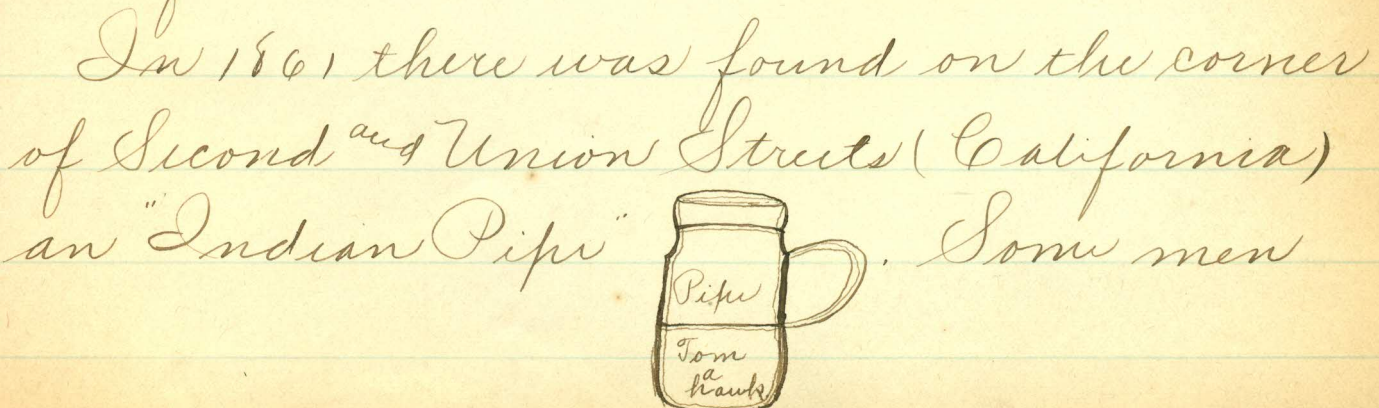 In 1861 there was found on the corner
of Second and Union Streets (California)
an "Indian Pipe" . Some men
Pipe
Tom
a
hawk